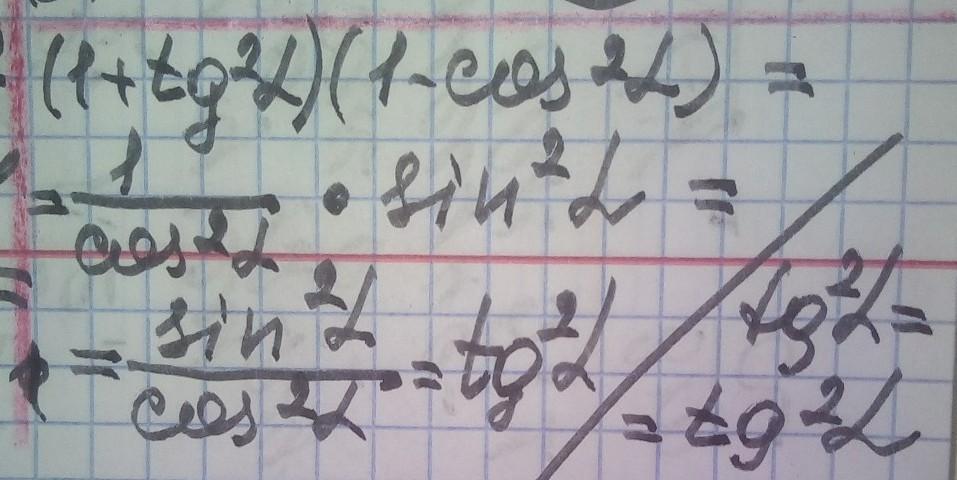 (1+tg²α)(1-cos²α) =
= 1/cos²α • sin²α =
= sin²α/cos²α = tg²α
tg²α =
= tg²α